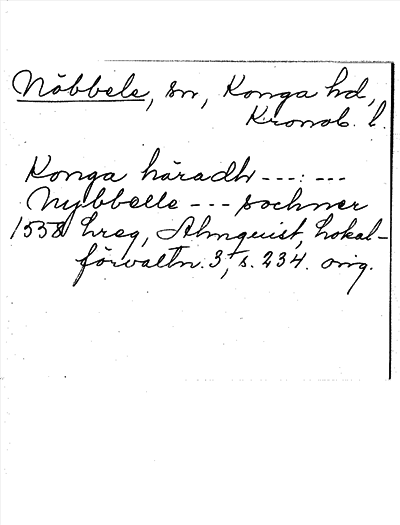 Nöbbele, sn, Konga hd,
Kronob. l.
Konga häradh ---:---
Nybbelle --- sochner
1538 hreg, Almquist, Lokal-
förvaltn. 3, s. 234. orig.